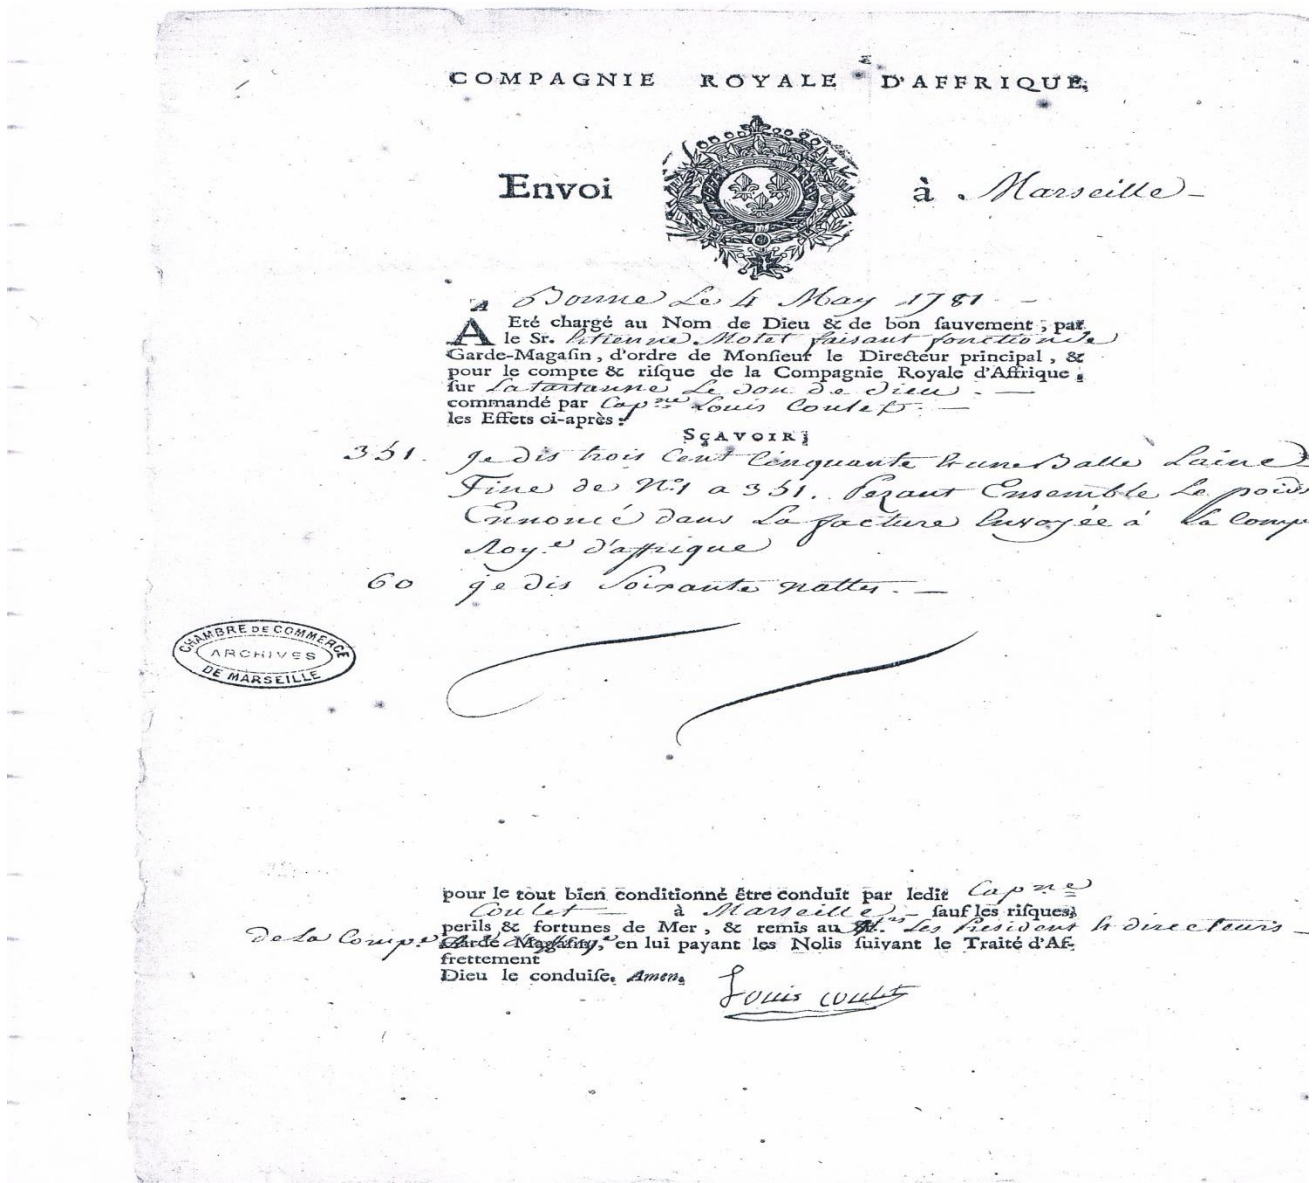 COMPAGNIE ROYALE D'AFFRIQUE,
Envoi à Marseille
A Bonne Le 4 May 1781
A Eté chargé au Nom de Dieu & de bon sauvement, par
le Sr. Etienne Motet faisant fonction de
Garde-Magasin, d'ordre de Monsieur le Directeur principal, &
pour le compte & risque de la Compagnie Royale d'Affrique,
sur La tartanne Le don de Dieu.
commandé par Capne Louis Coulet.
les Effets ci-après:
SÇAVOIR;
351. Je dis trois Cent Cinquante & une Balle Laine
Fine de N°1 a 351. Pezant Ensemble Le poids
Ennoncé dans La facture Envoyée à La Comp
Roy.e d'affrique
60 je dis Soixante nattes.
CHAMBRE DE COMMERCE
ARCHIVES
DE MARSEILLE
pour le tout bien conditionné être conduit par ledit Capne
Coulet à Marseille sauf les risques,
perils & fortunes de Mer, & remis au Les President & directeurs
de la Comp.e Garde Magasin, en lui payant les Nolis suivant le Traité d'Af-
frettement
Dieu le conduise. Amen.
Louis coulet